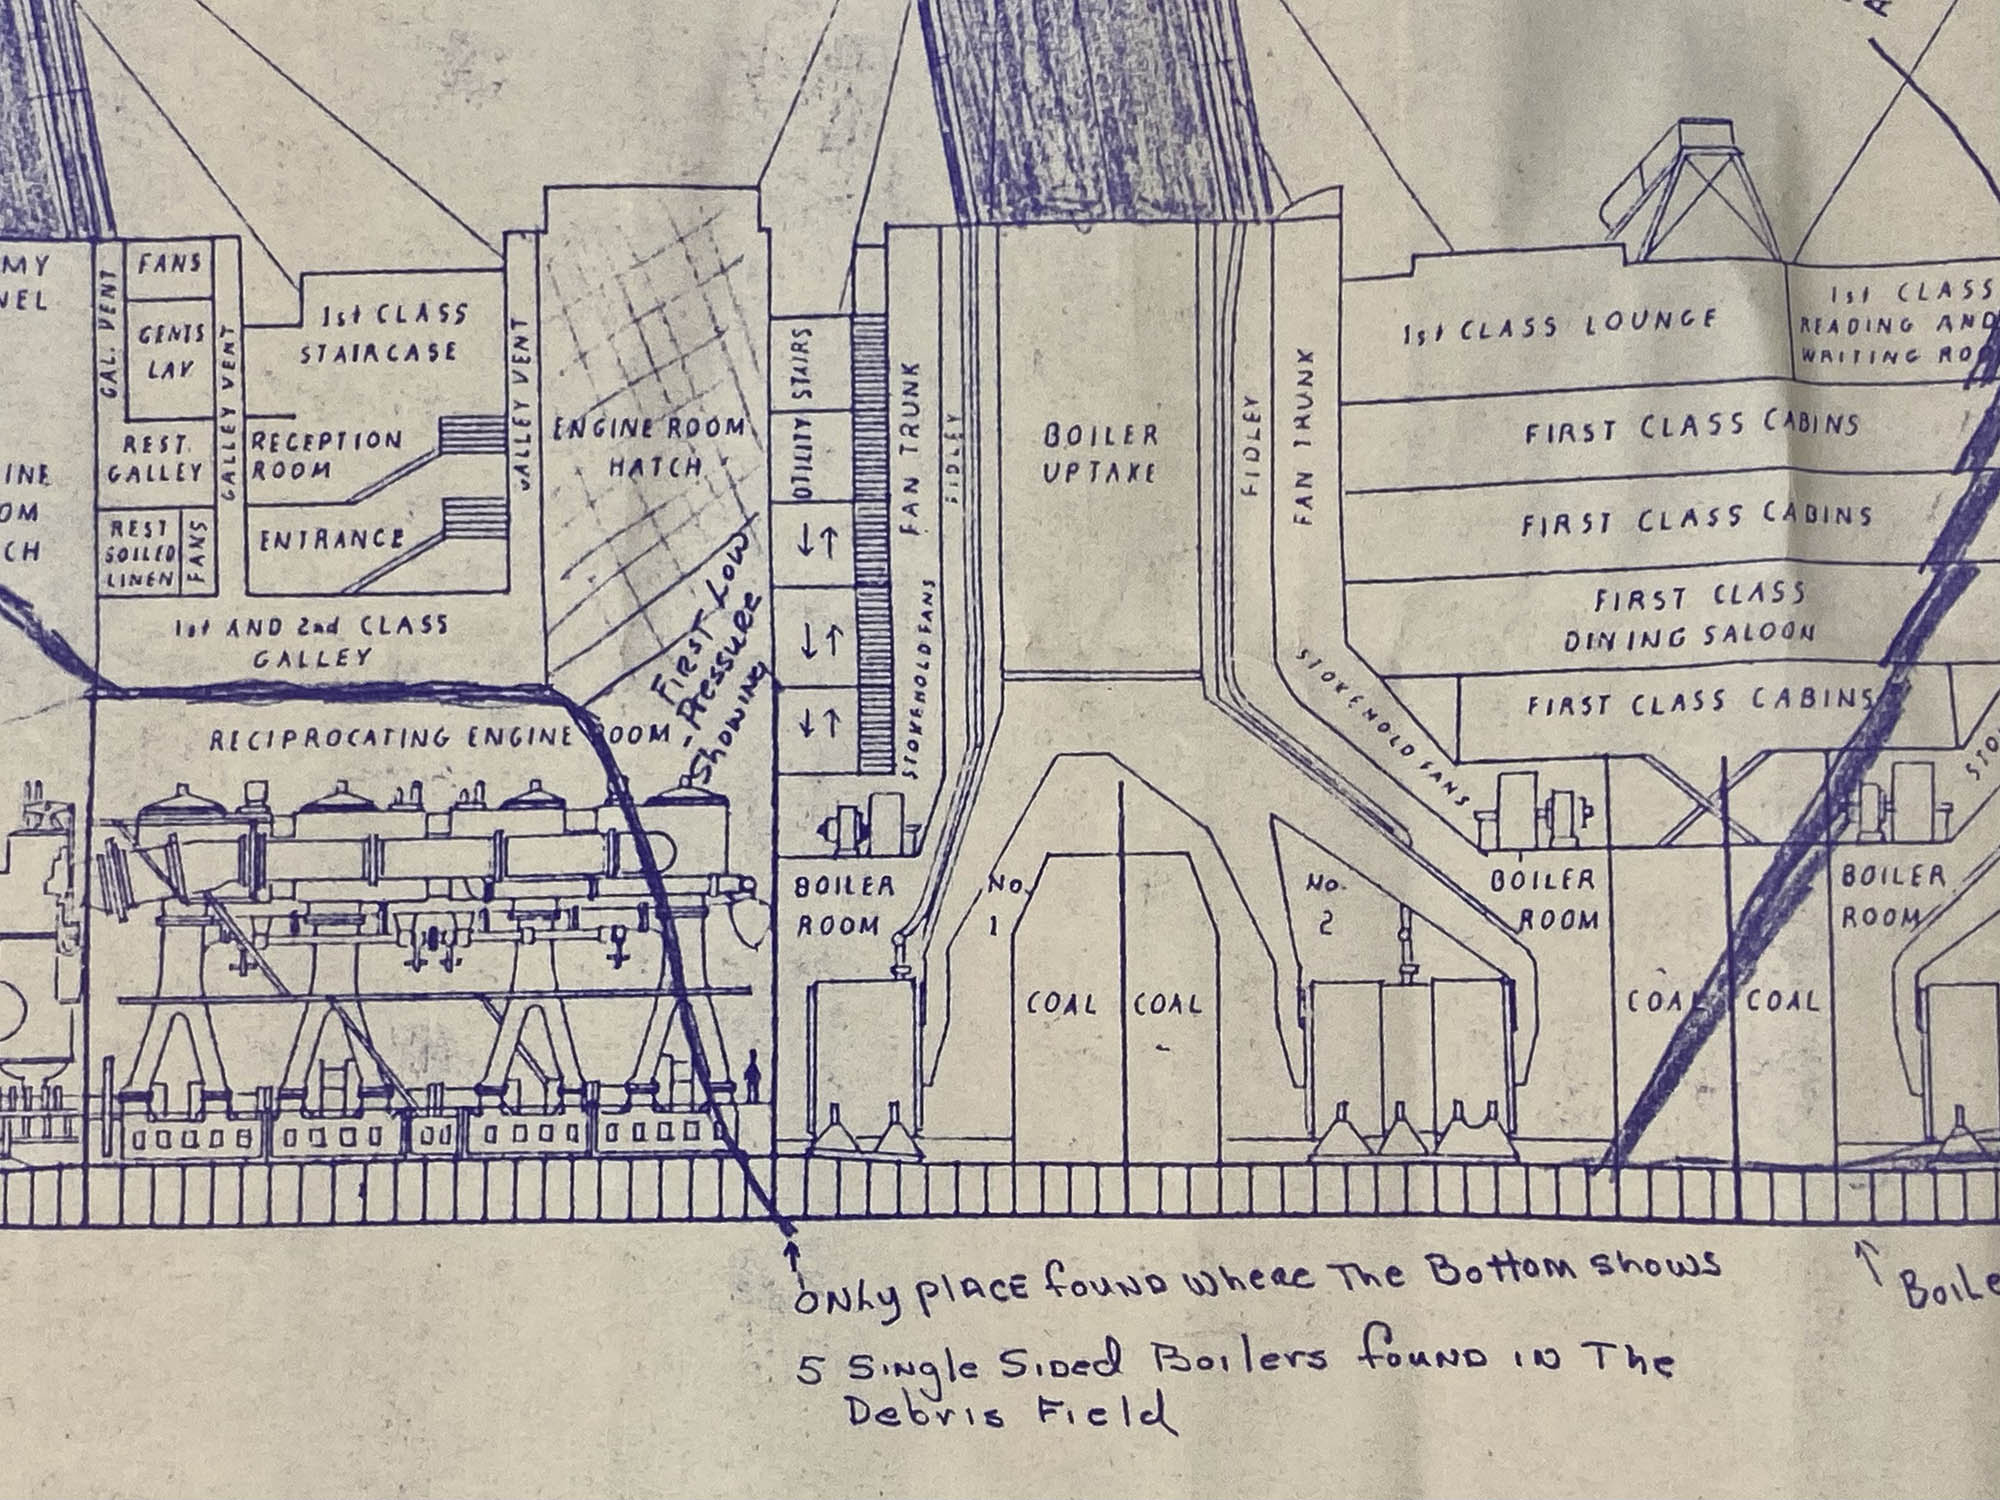 MY
NEL
GAL. VENT
FANS
GENTS
LAV
GALLEY VENT
1st CLASS
STAIRCASE
GALLEY VENT
REST.
GALLEY
RECEPTION
ROOM
REST
SOILED
LINEN
FANS
ENTRANCE
INE
OM
CH
1st AND 2nd CLASS
GALLEY
ENGINE ROOM
HATCH
STAIRS
UTILITY
FAN TRUNK
FIDLEY
STOKEHOLD FANS
BOILER
UPTAKE
FIDLEY
FAN TRUNK
STOKEHOLD FANS
1st CLASS LOUNGE
1st CLASS
READING AND
WRITING ROO
FIRST CLASS CABINS
FIRST CLASS CABINS
FIRST CLASS
DINING SALOON
FIRST CLASS CABINS
STO
FIRST LOW
PRESSURE
SHOWING
RECIPROCATING ENGINE ROOM
BOILER
ROOM
No.
1
No.
2
BOILER
ROOM
BOILER
ROOM
COAL COAL
COAL COAL
ONLY PLACE FOUND WHERE THE BOTTOM SHOWS
5 SINGLE SIDED BOILERS FOUND IN THE
DEBRIS FIELD
BOILE